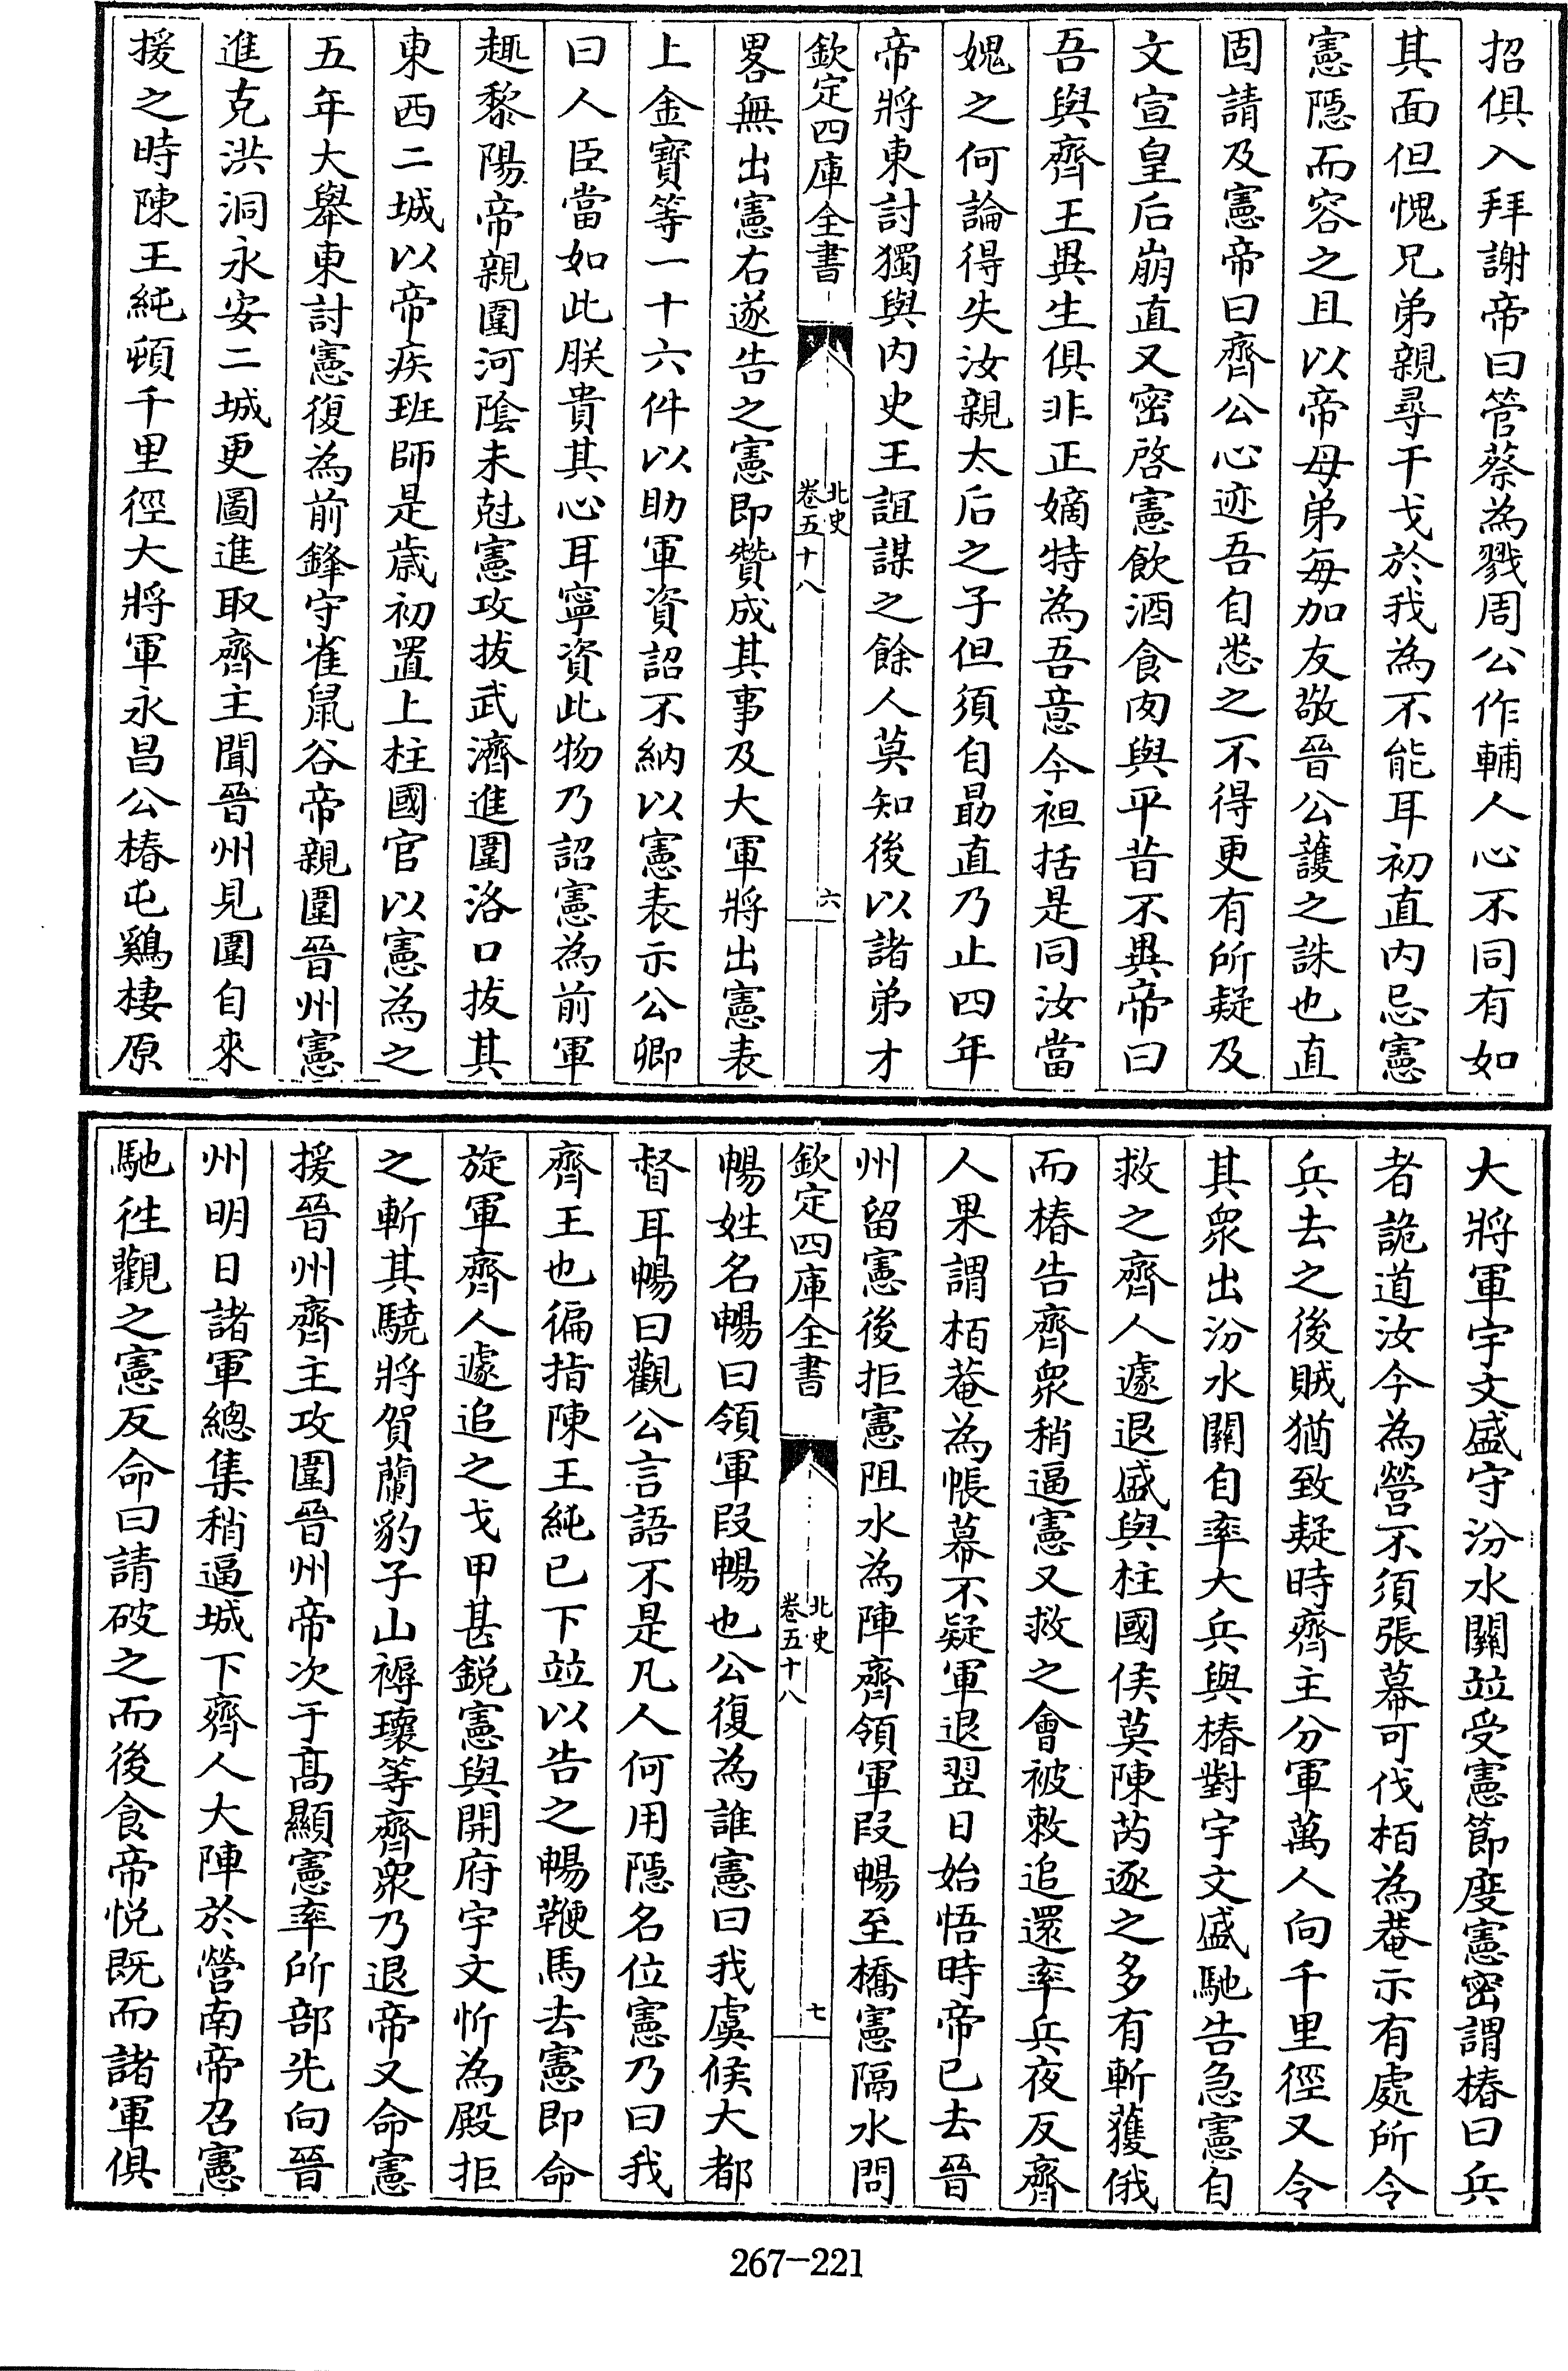 招俱入拜謝帝曰管蔡為戮周公作輔人心不同有如
其面但愧兄弟親尋干戈於我為不能耳初直内忌憲
憲隱而容之且以帝母弟每加友敬晉公䕶之誅也直
固請及憲帝曰齊公心迹吾自悉之不得更有所疑及
文宣皇后崩直又密啓憲飲酒食肉與平昔不異帝曰
吾與齊王異生俱非正嫡特為吾意今袒括是同汝當
媿之何論得失汝親太后之子但須自勗直乃止四年
帝將東討獨與内史王誼謀之餘人莫知後以諸弟才
欽定四庫全書
北史
卷五十八
六
畧無出憲右遂告之憲即贊成其事及大軍將出憲表
上金寶等一十六件以助軍資詔不納以憲表示公卿
曰人臣當如此朕貴其心耳寧資此物乃詔憲為前軍
趣黎陽帝親圍河陰未尅憲攻拔武濟進圍洛口拔其
東西二城以帝疾班師是歳初置上柱國官以憲為之
五年大舉東討憲復為前鋒守雀鼠谷帝親圍晉州憲
進克洪洞永安二城更圖進取齊主聞晉州見圍自來
援之時陳王純頓千里徑大將軍永昌公椿屯鷄棲原
大將軍宇文盛守汾水關竝受憲節度憲密謂椿曰兵
者詭道汝今為營不須張幕可伐栢為菴示有處所令
兵去之後賊猶致疑時齊主分軍萬人向千里徑又令
其衆出汾水關自率大兵與椿對宇文盛馳告急憲自
救之齊人遽退盛與柱國侯莫陳芮逐之多有斬獲俄
而椿告齊衆稍逼憲又救之會被敕追還率兵夜反齊
人果謂栢菴為帳幕不疑軍退翌日始悟時帝已去晉
州留憲後拒憲阻水為陣齊領軍段暢至橋憲隔水問
欽定四庫全書
北史
卷五十八
七
暢姓名暢曰領軍段暢也公復為誰憲曰我虞候大都
督耳暢曰觀公言語不是凡人何用隱名位憲乃曰我
齊王也徧指陳王純已下竝以告之暢鞭馬去憲即命
旋軍齊人遽追之戈甲甚鋭憲與開府宇文忻為殿拒
之斬其驍將賀蘭豹子山褥瓌等齊衆乃退帝又命憲
援晉州齊主攻圍晉州帝次于髙顯憲率所部先向晉
州明日諸軍總集稍逼城下齊人大陣於營南帝召憲
馳往觀之憲反命曰請破之而後食帝悦既而諸軍俱
267-221